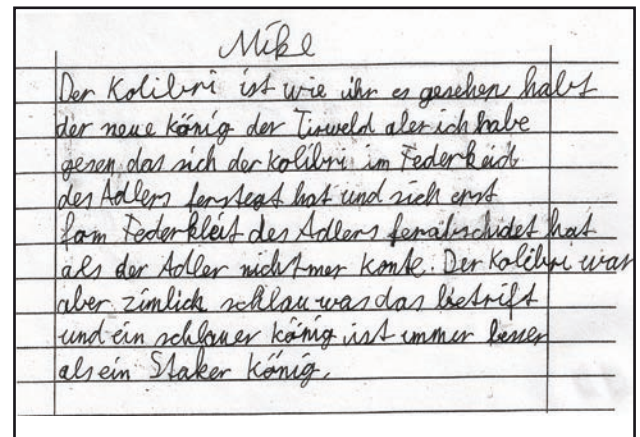 Mike
Der Kolibri ist wie ihr es gesehen habt
der neue König der Tirweld aler ich habe
gesen das sich der Kolibri im Federkeid
des Adlers ferstegt hat und sich erst
fom Federkleit des Adlers ferabschidet hat
als der Adler nicht mer konte. Der Kolibri war
aber zimlich schlau was das betrift
und ein schlauer könig ist immer besser
als ein Staker König.